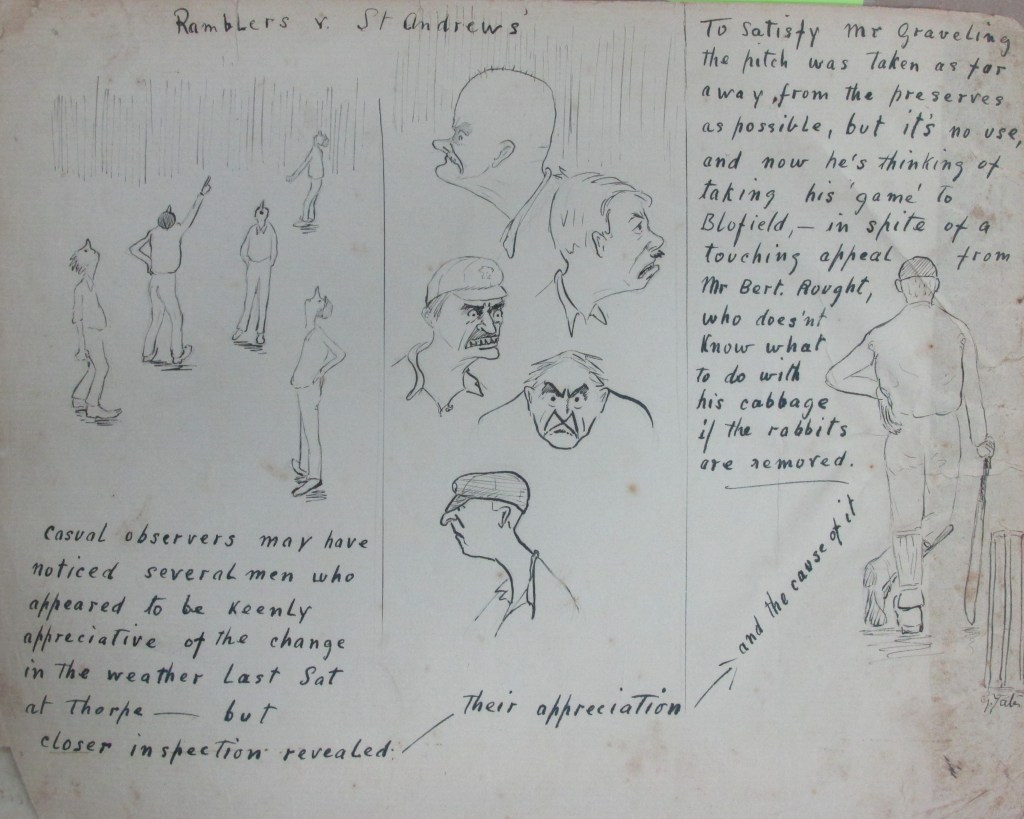 Ramblers v. St Andrews'
Casual observers may have
noticed several men who
appeared to be keenly
appreciative of the change
in the weather Last Sat
at Thorpe — but
closer inspection revealed
Their appreciation
and the cause of it
To Satisfy Mr Graveling
the pitch was Taken as far
away, from the preserves
as possible, but it's no use,
and now he's thinking of
taking his 'game' to
Blofield, — in spite of a
touching appeal from
Mr Bert. Rought,
who does'nt
Know what
to do with
his cabbage
if the rabbits
are removed.